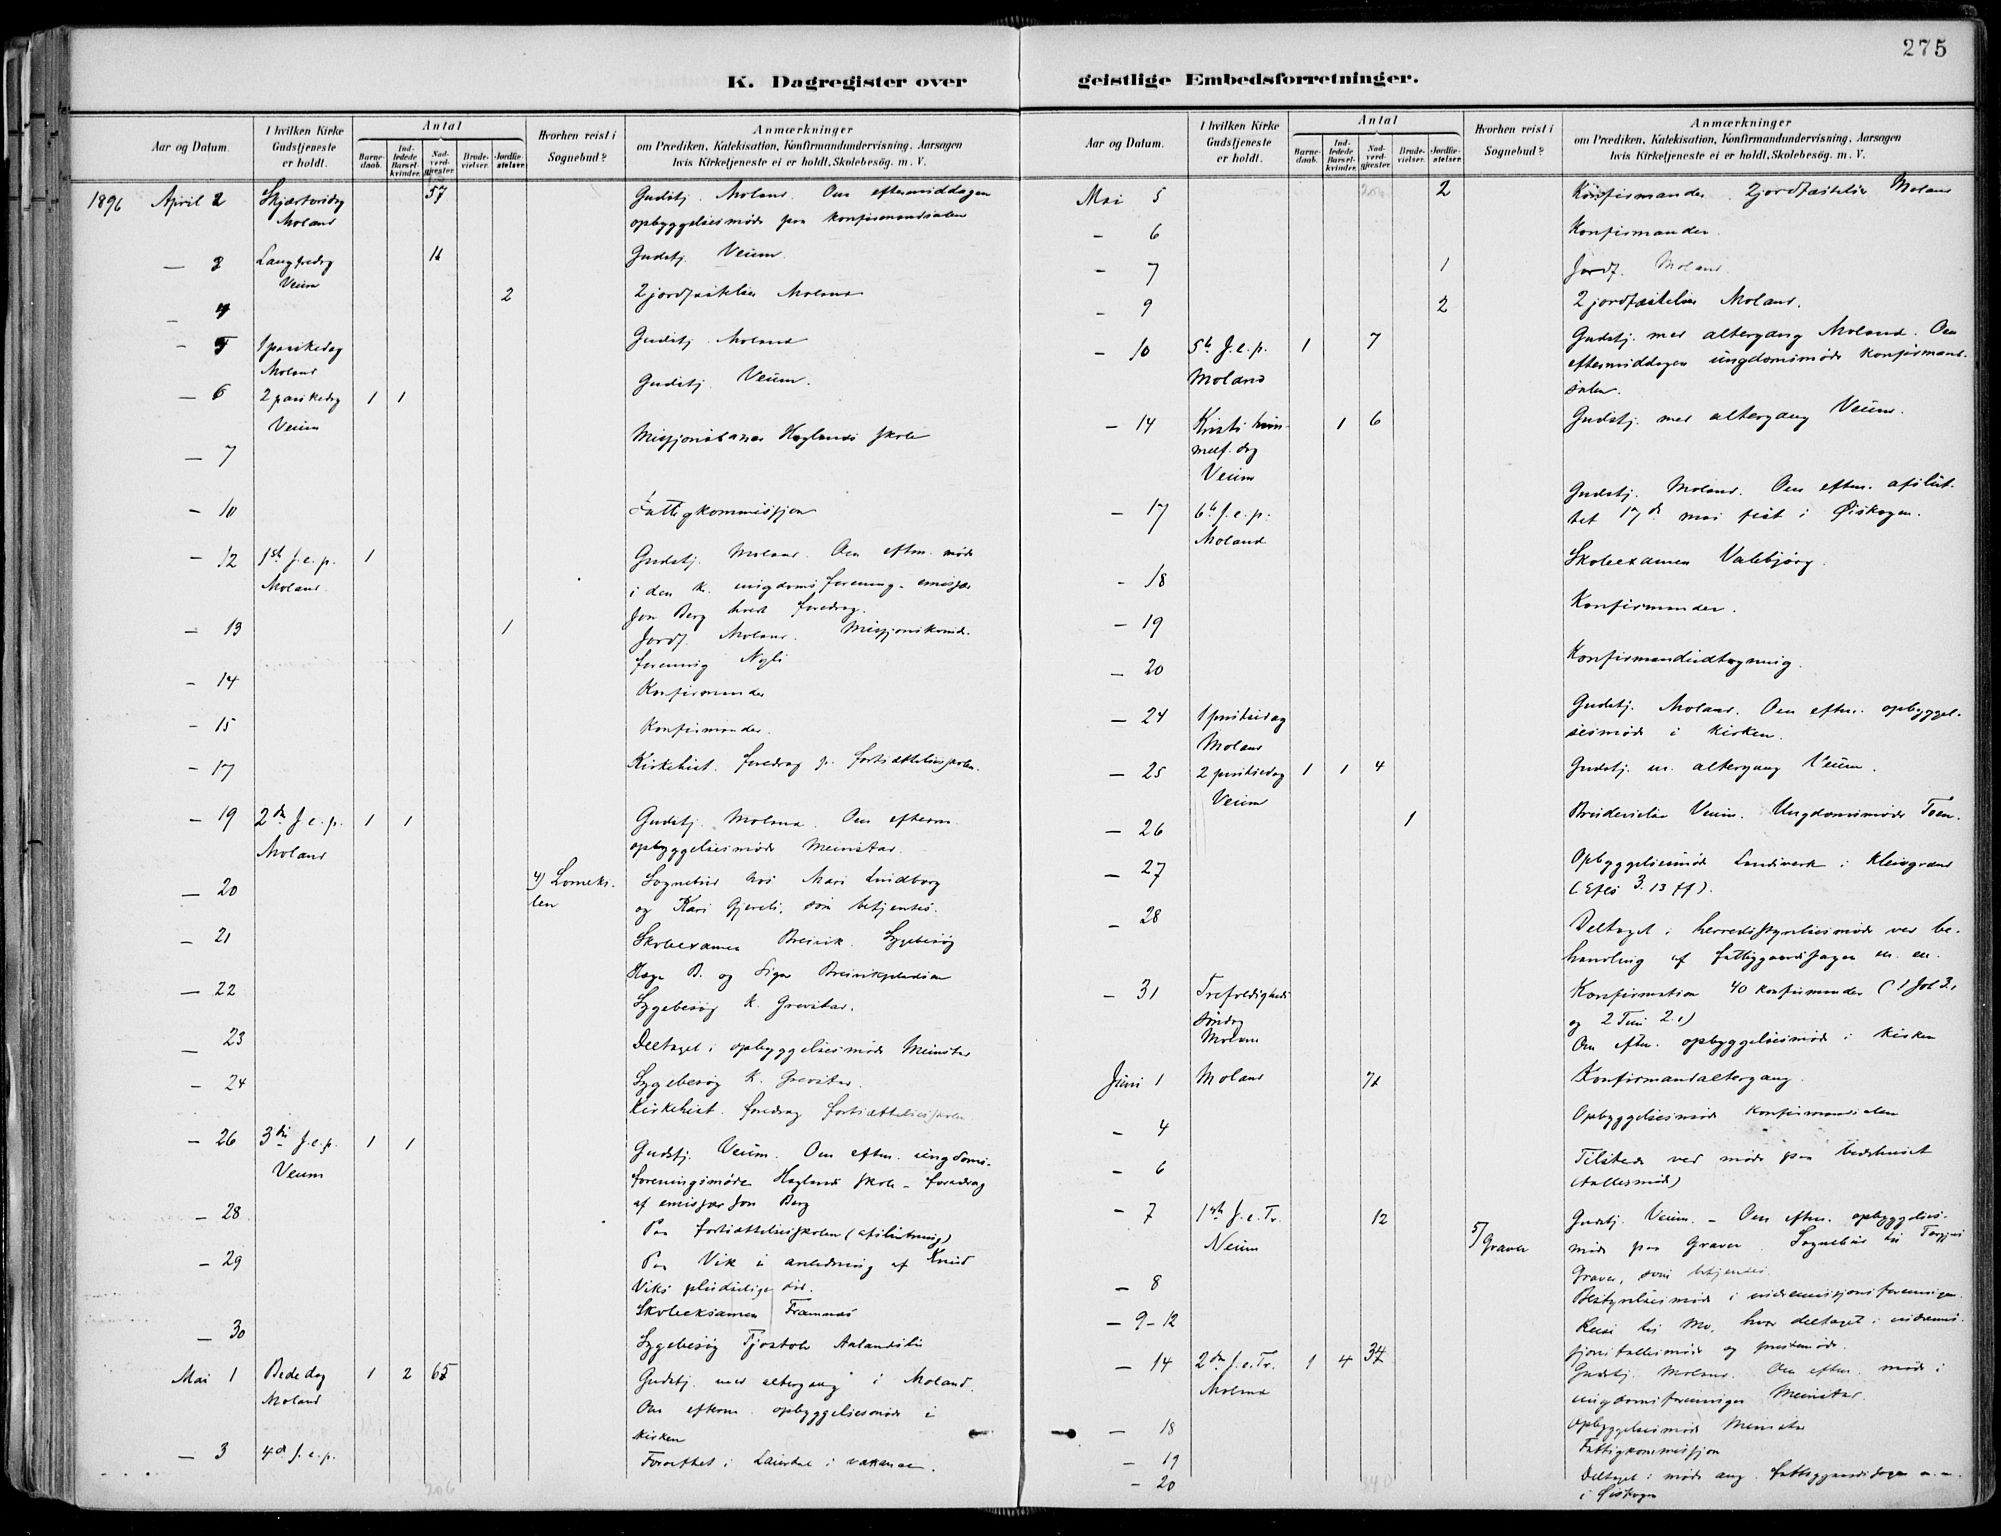 275
K. Dagregister over
geistlige Embedsforretninger.
Aar og Datum.
I hvilken Kirke Gudstjeneste er holdt.
Antal
Barnedaab.
Indledede Barselkvinder.
Nadverdgjester.
Brudevielser.
Jordfæstelser.
Hvorhen reist i Sognebud?
Anmærkninger
om Prædiken, Katekisation, Konfirmandundervisning, Aarsagen
hvis Kirketjeneste ei er holdt, Skolebesøg. m. V.
1896 April 2 Moland 57 Gudstj. Moland. Om eftermiddagen
opbyggelsesmøde paa konfirmandsalen
— 3 Langfredag Veum Gudstj. Veum.
— 4 2 2 jordfæstelser Moland
— 5 1 paaskedag Moland Gudstj. Moland
— 6 2 paaskedag Veum 1 1 Gudstj. Veum.
— 7 Haglands skole
— 10 Fattigkommissjon
— 12 1st s. e. p. Moland. 1 Gudstj. Moland. Om eftm. møde
i den k. ungdomsforening. emissær
Jon Berg foredrag.
— 13 1 Jordf. Moland. Missjonskvind.
forening Nyli
— 14 Konfirmander
— 15 Konfirmander.
— 17 Kirkehist. foredrag p. fortsættelsesskolen.
— 19 2den s. e. p. Moland 1 1 Gudstj. Moland. Om efterm.
opbyggelsesmøde Meinstad.
— 20 4) Sognebud hos Mari Lindborg
og Kari som betjentes.
— 21 Skoleexamen Breivik. Sygebesøg
— 22 Sygebesøg K. Grevstad.
— 23 Deltaget i opbyggelsesmøde Meinstad
— 24 Sygebesøg K. Grevstad.
Kirkehist. foredrag fortsættelsesskolen
— 26 3die s. e. p. Veum 1 1 Gudstj. Veum. Om eftm. ungdoms-
foreningsmøde Haglands skole — foredrag
af emissær Jon Berg
— 28 Paa fortsættelsesskolen (afslutning)
— 29 Paa Vik i anledning af Knud
Viks pludselige død.
Skoleeksamen Framnæs
— 30 Sygebesøg
Mai 1 Bededag Moland 1 2 65 Gudstj. med altergang i Moland.
Om efterm. opbyggelsesmøde i
kirken
— 3 4de s. e. p. i vakanse.
206
Aar og Datum.
I hvilken Kirke Gudstjeneste er holdt.
Antal
Barnedaab.
Indledede Barselkvinder.
Nadverdgjester.
Brudevielser.
Jordfæstelser.
Hvorhen reist i Sognebud?
Anmærkninger
om Prædiken, Katekisation, Konfirmandundervisning, Aarsagen
hvis Kirketjeneste ei er holdt, Skolebesøg. m. V.
Mai 5 2 Konfirmander. 2 jordfæstelser Moland
— 6 Konfirmander.
— 7 1 Jordf. Moland.
— 9 2 2 jordfæstelser Moland.
— 10 5te s. e. p. Moland 1 7 Gudstj. med altergang Moland. Om
eftermiddagen ungdomsmøde konfirmand-
salen.
— 14 Kristi himmelf. dag Veum 1 6 Gudstj. med altergang Veum.
— 17 6te s. e. p. Moland Gudstj. Moland. Om eftm. afslut-
tet 17de mai fest i Øiskogen.
— 18 Skoleexamen Valebjørg.
— 19 Konfirmander.
— 20 Konfirmandudtagning.
— 24 1 pintsedag Moland Gudstj. Moland. Om eftm. opbyggel-
sesmøde i kirken.
— 25 2 pintsedag Veum 1 1 4 Gudstj. m. altergang Veum.
— 26 1 Brudevielse Veum. Ungdomsmøde
— 27 Opbyggelsesmøde Landsverk i Kleivgrend
(Efes 3.13 ff).
— 28 Deltaget i herredsstyrelsesmøde ved be-
handling af fattiggaardssagen m. m.
— 31 Trefoldigheds søndag Moland Konfirmation 40 konfirmander
og 2 Tim 2.1)
Om eftm. opbyggelsesmøde i kirken
Juni 1 Moland Konfirmandaltergang.
— 4 Opbyggelsesmøde konfirmandsalen
— 6 Tilstede ved møde paa bedehuset
— 7 1ste s. e. Tr. Veum 12 5) Graver Gudstj. Veum. — Om eftm. opbyggelses-
møde paa Graver. Sognebud til
Graver, som betjentes.
— 8 Bestyrelsesmøde i indremissjonsforeningen.
— 9-12 Reise til Mo, hvor deltaget i indremis-
sjons fællesmøde og prestemøde.
— 14 2den s. e. Tr. Moland 1 4 34 Gudstj. Moland. Om eftm. møde i
ungdomsforeningen Meinstad.
— 18 Opbyggelsesmøde Meinstad
— 19 Fattigkommissjon
— 20 Deltaget i møde ang. fattiggaardssagen m. m.
i Øiskogen
340